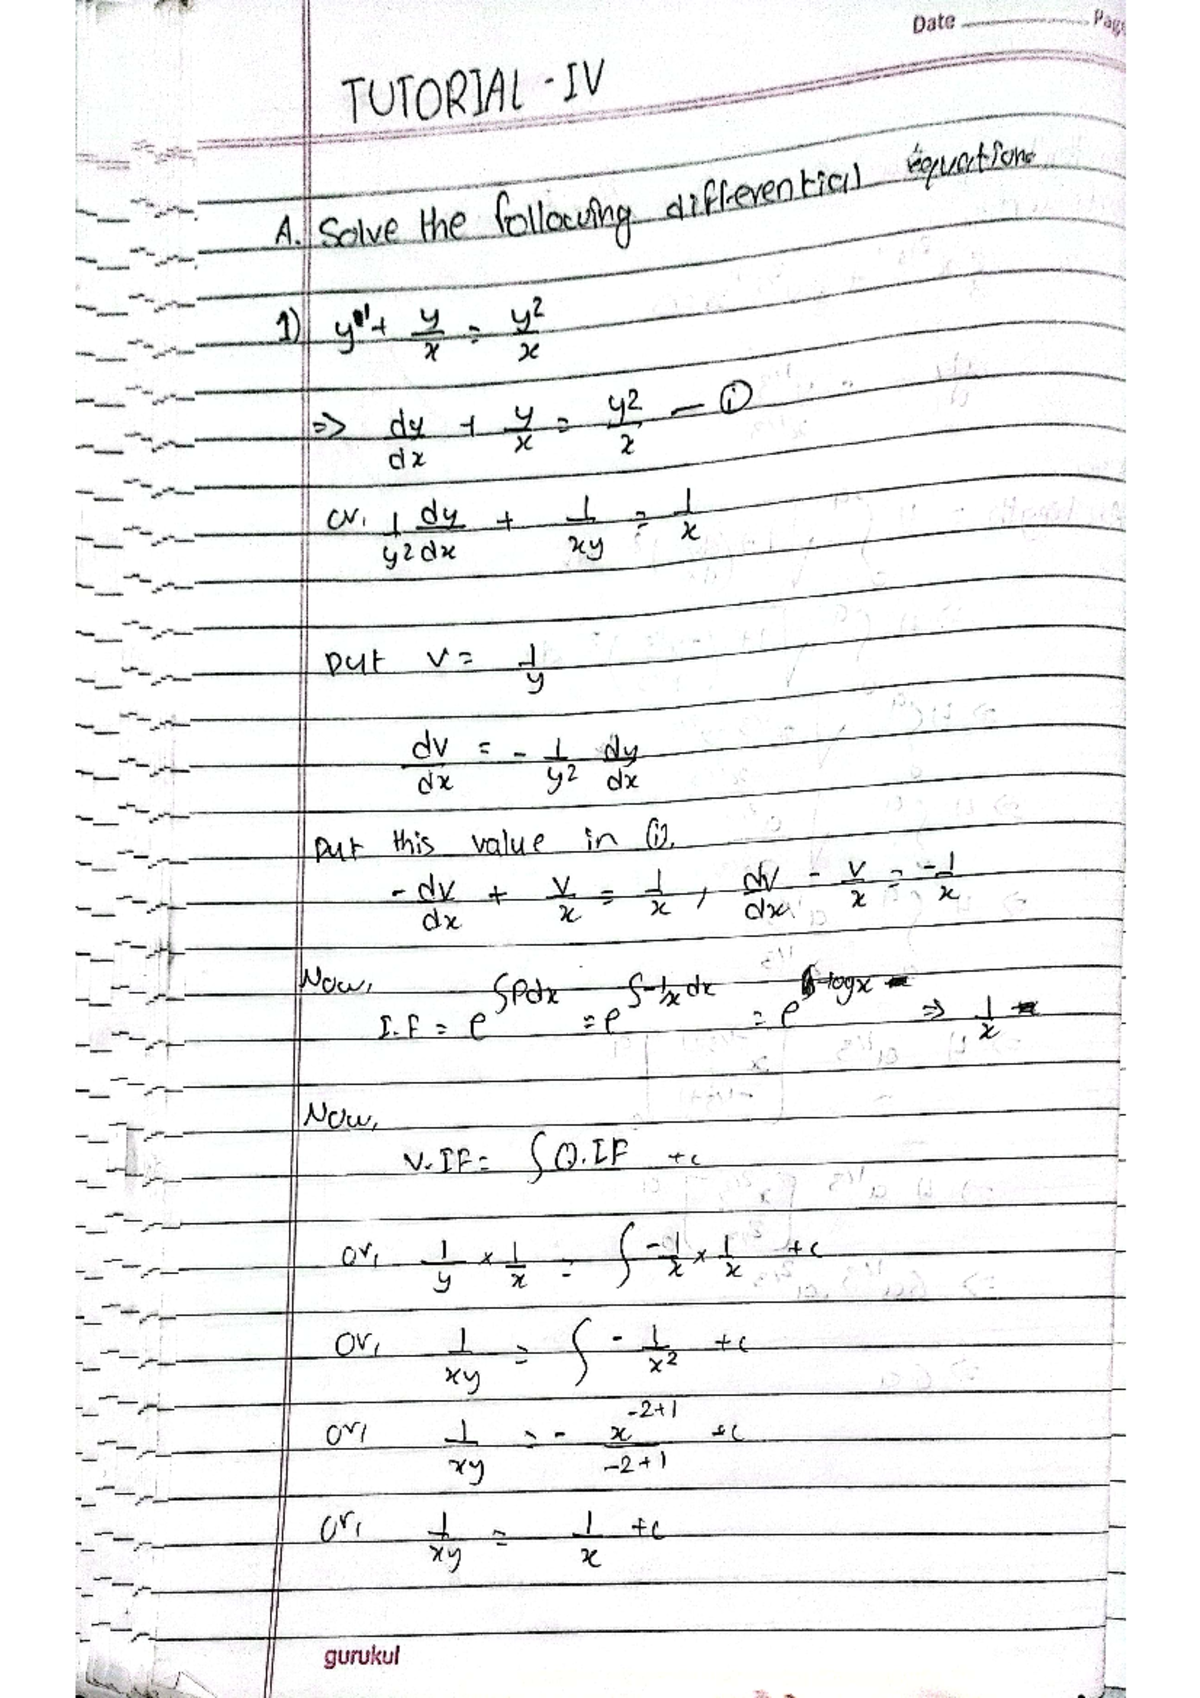 Date Page
TUTORIAL - IV
A. Solve the following differential equations
1) y' + y/x = y²/x
=> dy/dx + y/x = y²/x — (i)
or, 1/y² dy/dx + 1/xy = 1/x
put v = 1/y
dv/dx = - 1/y² dy/dx
put this value in (i).
- dv/dx + v/x = 1/x , dv/dx - v/x = -1/x
Now,
I.F = e^∫Pdx = e^∫-1/x dx = e^-logx => 1/x
Now,
V.IF = ∫Q.IF +c
or, 1/y × 1/x = ∫ -1/x × 1/x +c
or, 1/xy = ∫ - 1/x² +c
or, 1/xy = - x^-2+1/-2+1 +c
or, 1/xy = 1/x +c
gurukul